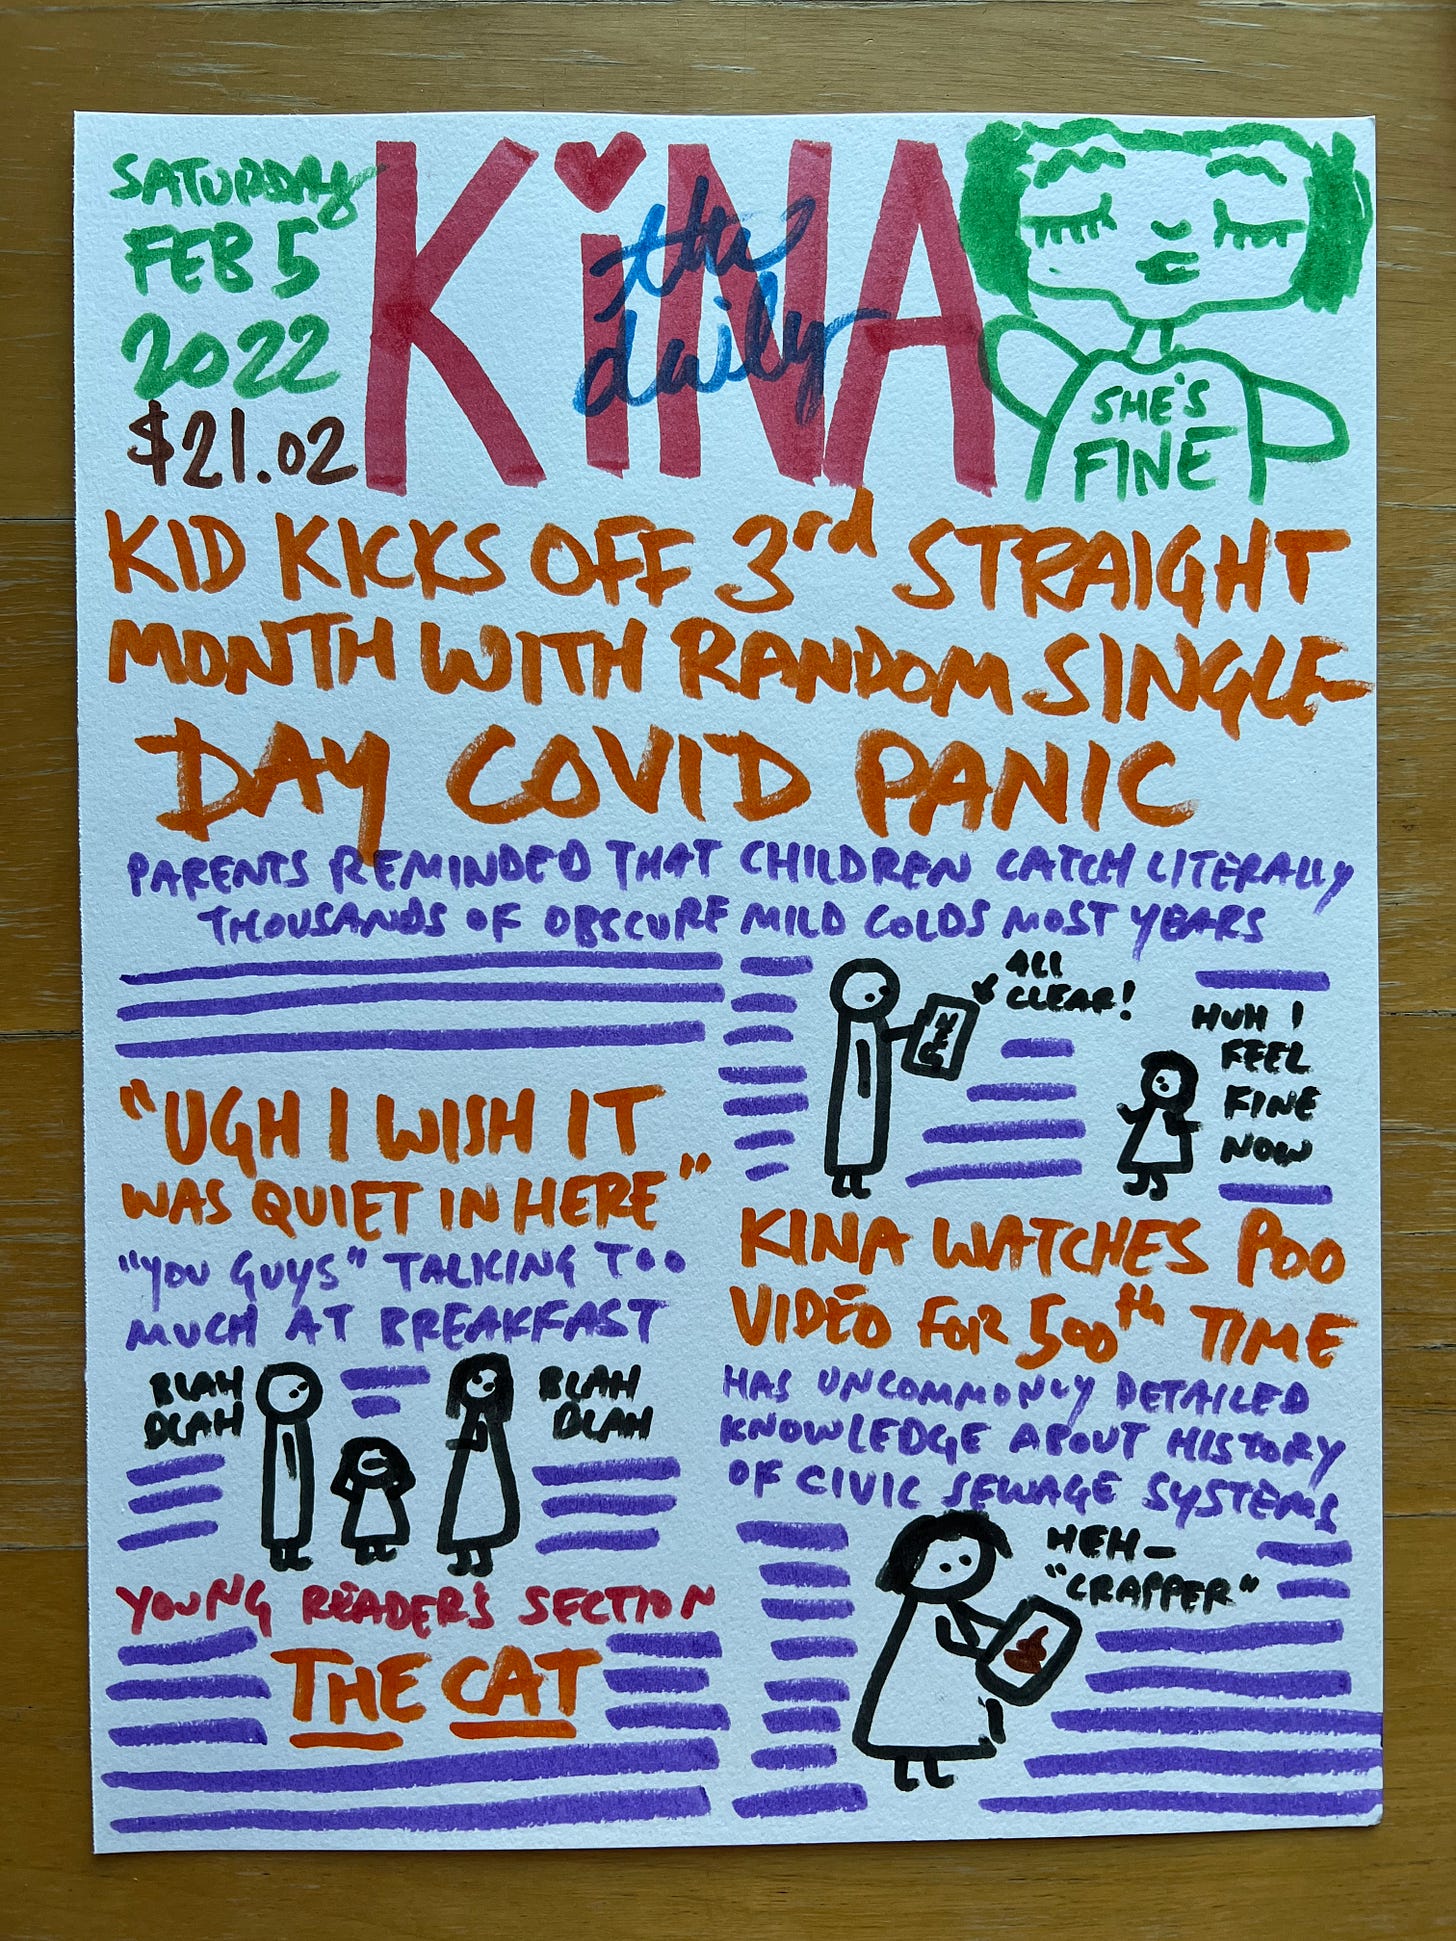 SATURDAY
FEB 5
2022
$21.02
KiNA
the
daily
SHE'S
FINE
KID KICKS OFF 3rd STRAIGHT
MONTH WITH RANDOM SINGLE-
DAY COVID PANIC
PARENTS REMINDED THAT CHILDREN CATCH LITERALLY
THOUSANDS OF OBSCURE MILD COLDS MOST YEARS
ALL
CLEAR!
NEG
HUH I
FEEL
FINE
NOW
"UGH I WISH IT
WAS QUIET IN HERE"
"YOU GUYS" TALKING TOO
MUCH AT BREAKFAST
BLAH
BLAH
BLAH
BLAH
YOUNG READER'S SECTION
THE CAT
KINA WATCHES POO
VIDEO FOR 500th TIME
HAS UNCOMMONLY DETAILED
KNOWLEDGE ABOUT HISTORY
OF CIVIC SEWAGE SYSTEMS
HEH-
"CRAPPER"